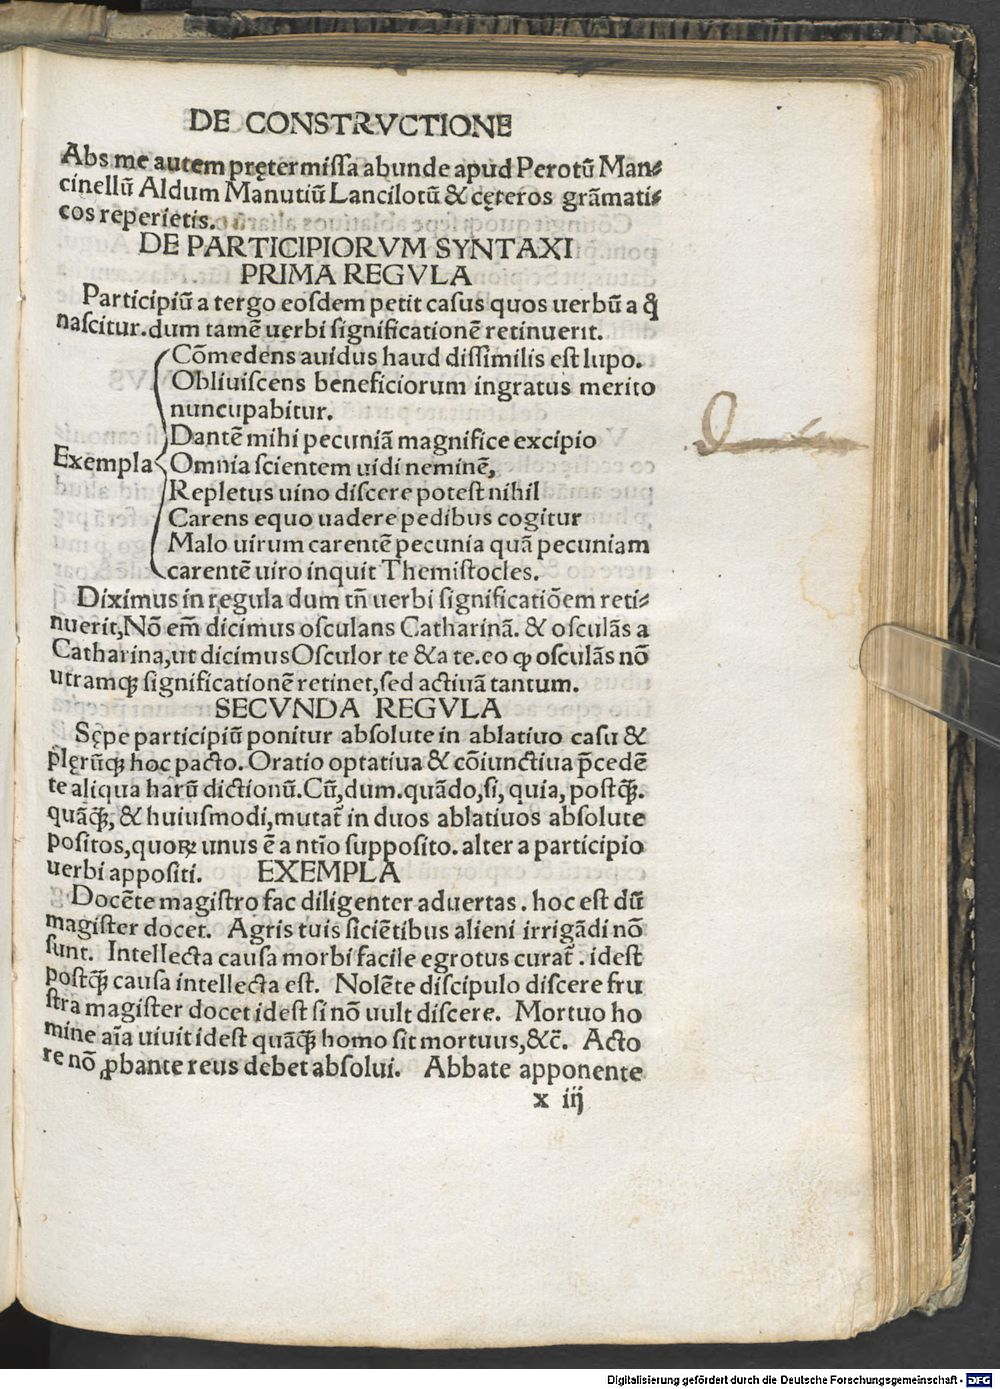 DE CONSTRVCTIONE
Abs me autem prętermiſſa abunde apud Perotū Man⸗
cinellū Aldum Manutiū Lancilotū & cęteros grāmati⸗
cos reperietis.
DE PARTICIPIORVM SYNTAXI
PRIMA REGVLA
Participiū a tergo eoſdem petit caſus quos uerbū a ꝗ̄
naſcitur. dum tamē uerbi ſignificationē retinuerit.
Cōmedens auidus haud diſſimilis eſt lupo.
Obliuiſcens beneficiorum ingratus merito
nuncupabitur.
Dantē mihi pecuniā magnifice excipio
Exempla Omnia ſcientem uidi neminē,
Repletus uino diſcere poteſt nihil
Carens equo uadere pedibus cogitur
Malo uirum carentē pecunia quā pecuniam
carentē uiro inquit Themiſtocles.
Diximus in regula dum tn̄ uerbi ſignificatiōem reti⸗
nuerit, Nō em̄ dicimus oſculans Catharinā. & oſculās a
Catharina, ut dicimus Oſculor te & a te. eo ꝙ oſculās nō
utramqꝫ ſignificationē retinet, ſed actiuā tantum.
SECVNDA REGVLA
Sępe participiū ponitur abſolute in ablatiuo caſu &
plęrūqꝫ hoc pacto. Oratio optatiua & cōiunctiua p̄cedē
te aliqua harū dictionū. Cū, dum. quādo, ſi, quia, poſtqꝫ̄.
quāqꝫ̄, & huiuſmodi, mutat̄ in duos ablatiuos abſolute
poſitos, quoꝝ unus ē a ntīo ſuppoſito. alter a participio
uerbi appoſiti. EXEMPLA
Docēte magiſtro fac diligenter aduertas. hoc eſt dū
magiſter docet. Agris tuis ſiciētibus alieni irrigādi nō
ſunt. Intellecta cauſa morbi facile egrotus curat̄. ideſt
poſtqꝫ̄ cauſa intellecta eſt. Nolēte diſcipulo diſcere fru
ſtra magiſter docet ideſt ſi nō uult diſcere. Mortuo ho
mine aīa uiuit ideſt quāqꝫ̄ homo ſit mortuus, &c̄. Acto
re nō ꝓbante reus debet abſolui. Abbate apponente
x iij
Digitalisierung gefördert durch die Deutsche Forschungsgemeinschaft - DFG